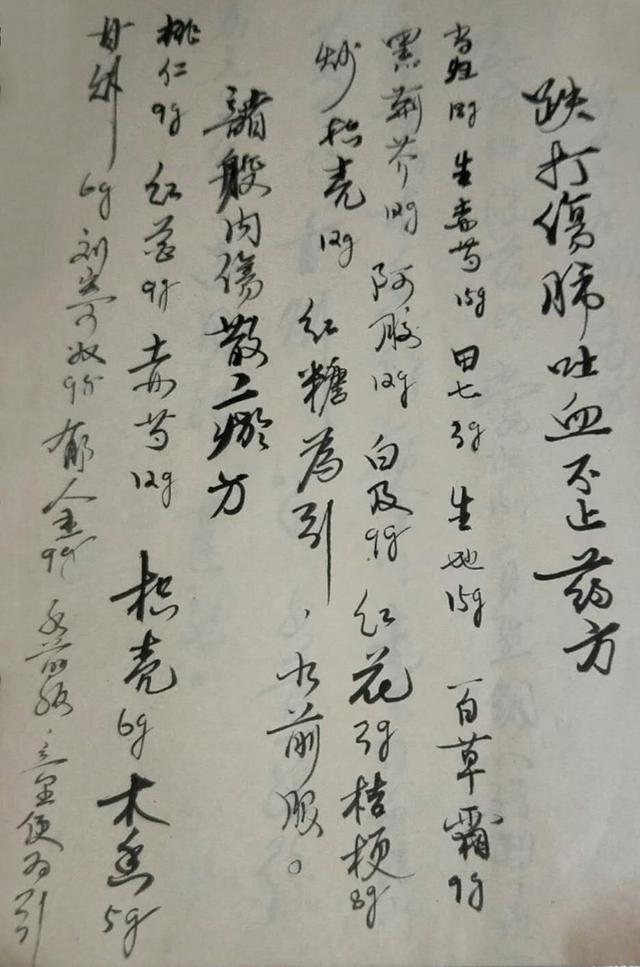 跌打傷肺吐血不止药方
当归12g 生赤芍15g 田七3g 生地15g 百草霜9g
黑荊芥12g 阿胶12g 白及9g 红花3g 桔梗8g
炒枳壳12g 红糖为引，水前服。
諸般内傷散二瘀方
桃仁9g 红花9g 赤芍12g 枳壳6g 木香5g
甘草6g 刘寄奴9g 郁金9g 水前服，童便为引